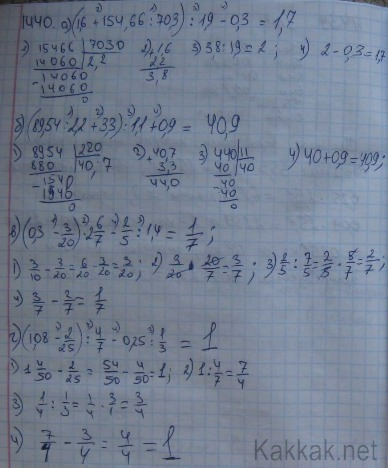 1440. а) (1,6 + 154,66 : 70,3) : 1,9 - 0,3 = 1,7
1) 15466 | 7030 2) 1,6 3) 3,8 : 1,9 = 2 ; 4) 2 - 0,3 = 1,7
14060 | 2,2 2,2
- 14060 3,8
14060
0
б) (89,54 : 2,2 + 3,3) : 1,1 + 0,9 = 40,9
1) 8954 | 220 2) + 40,7 3) 440 | 11 4) 40 + 0,9 = 40,9;
880 | 40,7 3,3 40 | 40
- 1540 44,0 - 40
1540 40
0 0
в) (0,3 - 3/20) · 2 6/7 - 2/5 : 1,4 = 1/7 ;
1) 3/10 - 3/20 = 6/20 - 3/20 = 3/20 ; 2) 3/20 · 20/7 = 3/7 ; 3) 2/5 : 7/5 = 2/5 · 5/7 = 2/7 ;
4) 3/7 - 2/7 = 1/7
г) (1,08 - 2/25) : 4/7 - 0,25 : 1/3 = 1
1) 1 4/50 - 2/25 = 54/50 - 4/50 = 1 ; 2) 1 : 4/7 = 7/4
3) 1/4 : 1/3 = 1/4 · 3/1 = 3/4
4) 7/4 - 3/4 = 4/4 = 1
Kakkak.net